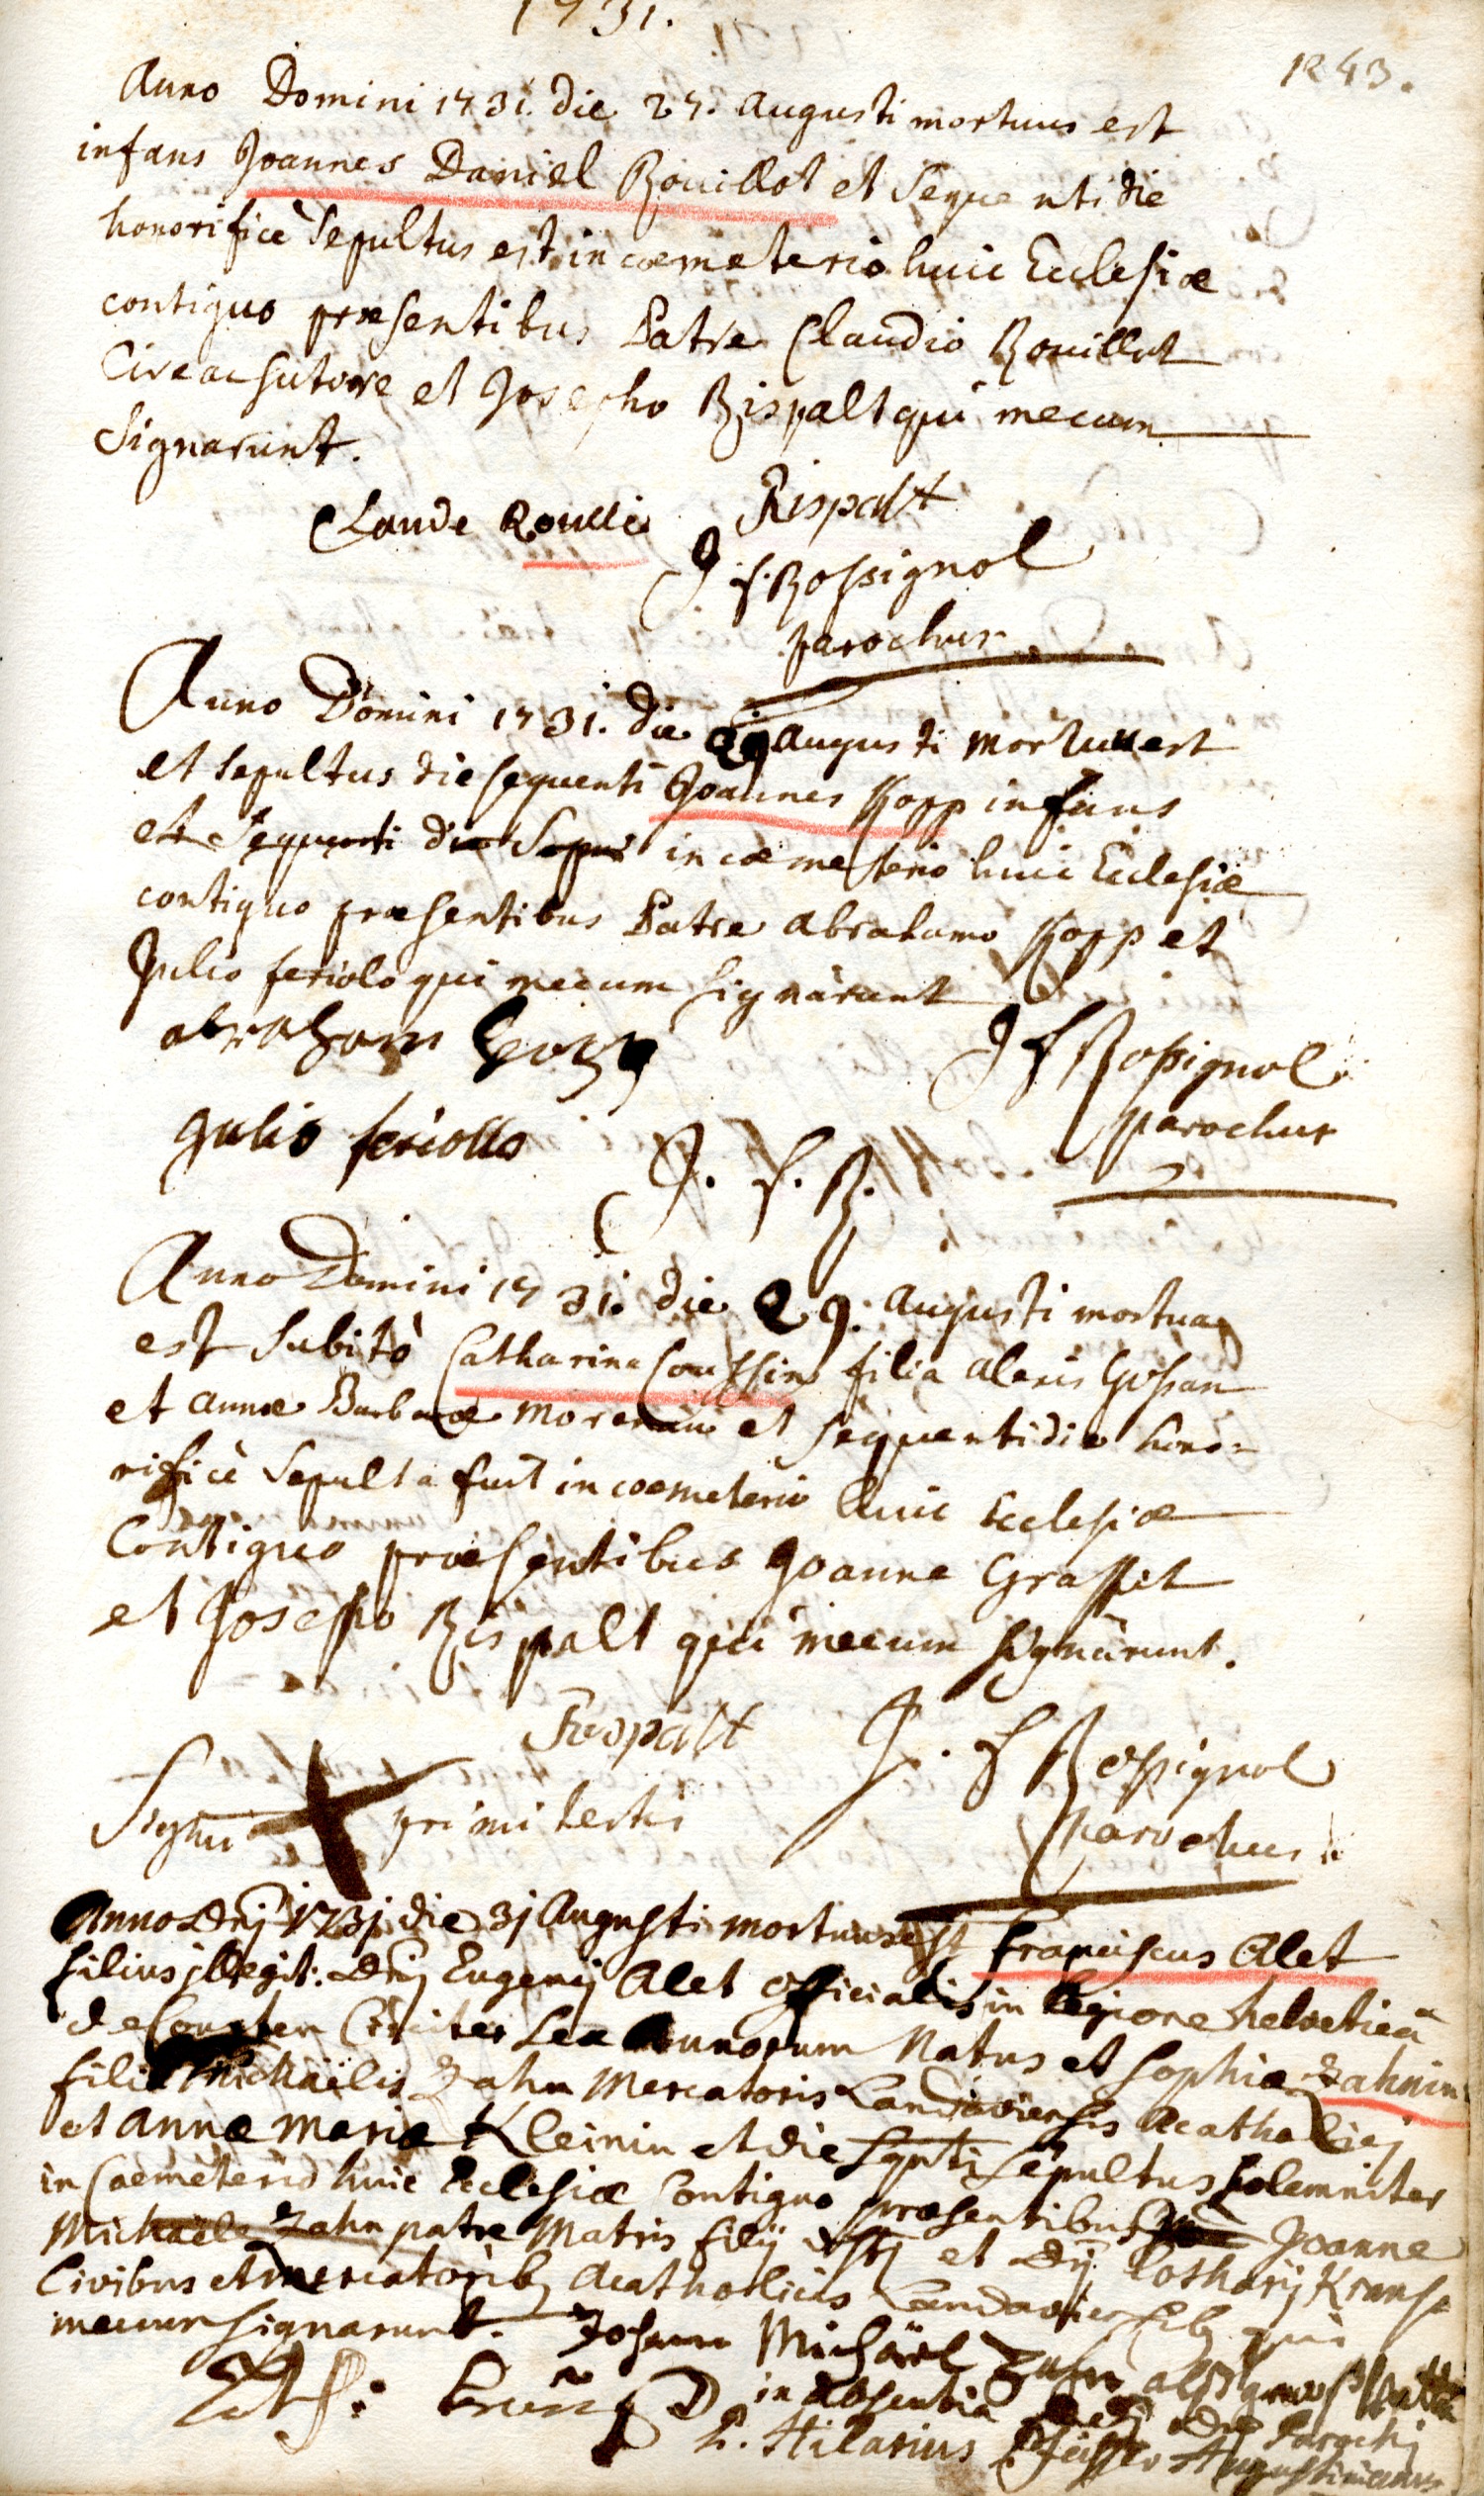 1731.
1243.
Anno Domini 1731. die 27. Augusti mortuus est
infans Joannes Daniel Rouillot et Sequenti die
honorificè Sepultus est in cœmeterio huic Ecclesiæ
contiguo præsentibus Patre Claudio Rouillot
Cive ac Sutore et Josepho Rispalt qui mecum
Signarunt.
Claude Roulle Rispalt
J. f. Rossignol
parochus
Anno Domini 1731. die 29 Augusti mortuus est
et sepultus die sequenti Joannes Kopp infans
et Sequenti die in cœmeterio huic Ecclesiæ
contiguo præsentibus Patre Abrahamo Kopp et
Julio feriolo qui mecum Signarunt
abraham
J f Rossignol
parochus
Julio feriollo
J. f. R.
Anno Domini 1731. die 29. Augusti mortua
est Subitò Catharina filia
et Annæ Barbaræ et sequenti die hono-
rificè Sepulta fuit in coemeterio huic Ecclesiæ
Contiguo præsentibus Joanne
et Josepho Rispalt qui mecum signarunt.
Rispalt J. f Rossignol
Signu primi testis parochus
Anno Dnj 1731 die 31 Augusti mortuus est Franciscus Alet
filius illegit: Dnj Eugenij Alet Officialis in legione helvetica
de Circiter Sex Annorum Natus et Sophiæ Zahnin
filiæ Michaëlis Zahn Mercatoris Landaviensis Acatholicj
et Annæ Mariæ Kleinin et die Sqnti Sepultus Solemniter
in Cæmeterio huic Ecclesiæ Contiguo præsentibus Joanne
Michaele Zahn patre Matris filij et Dn Lotharij Krauss
Civibus et mercatorib Acatholicis qui
mecum signarunt. Johann Michael Zahn als
in absentia Dnj Parochj
P. Hilarius Augustinianus